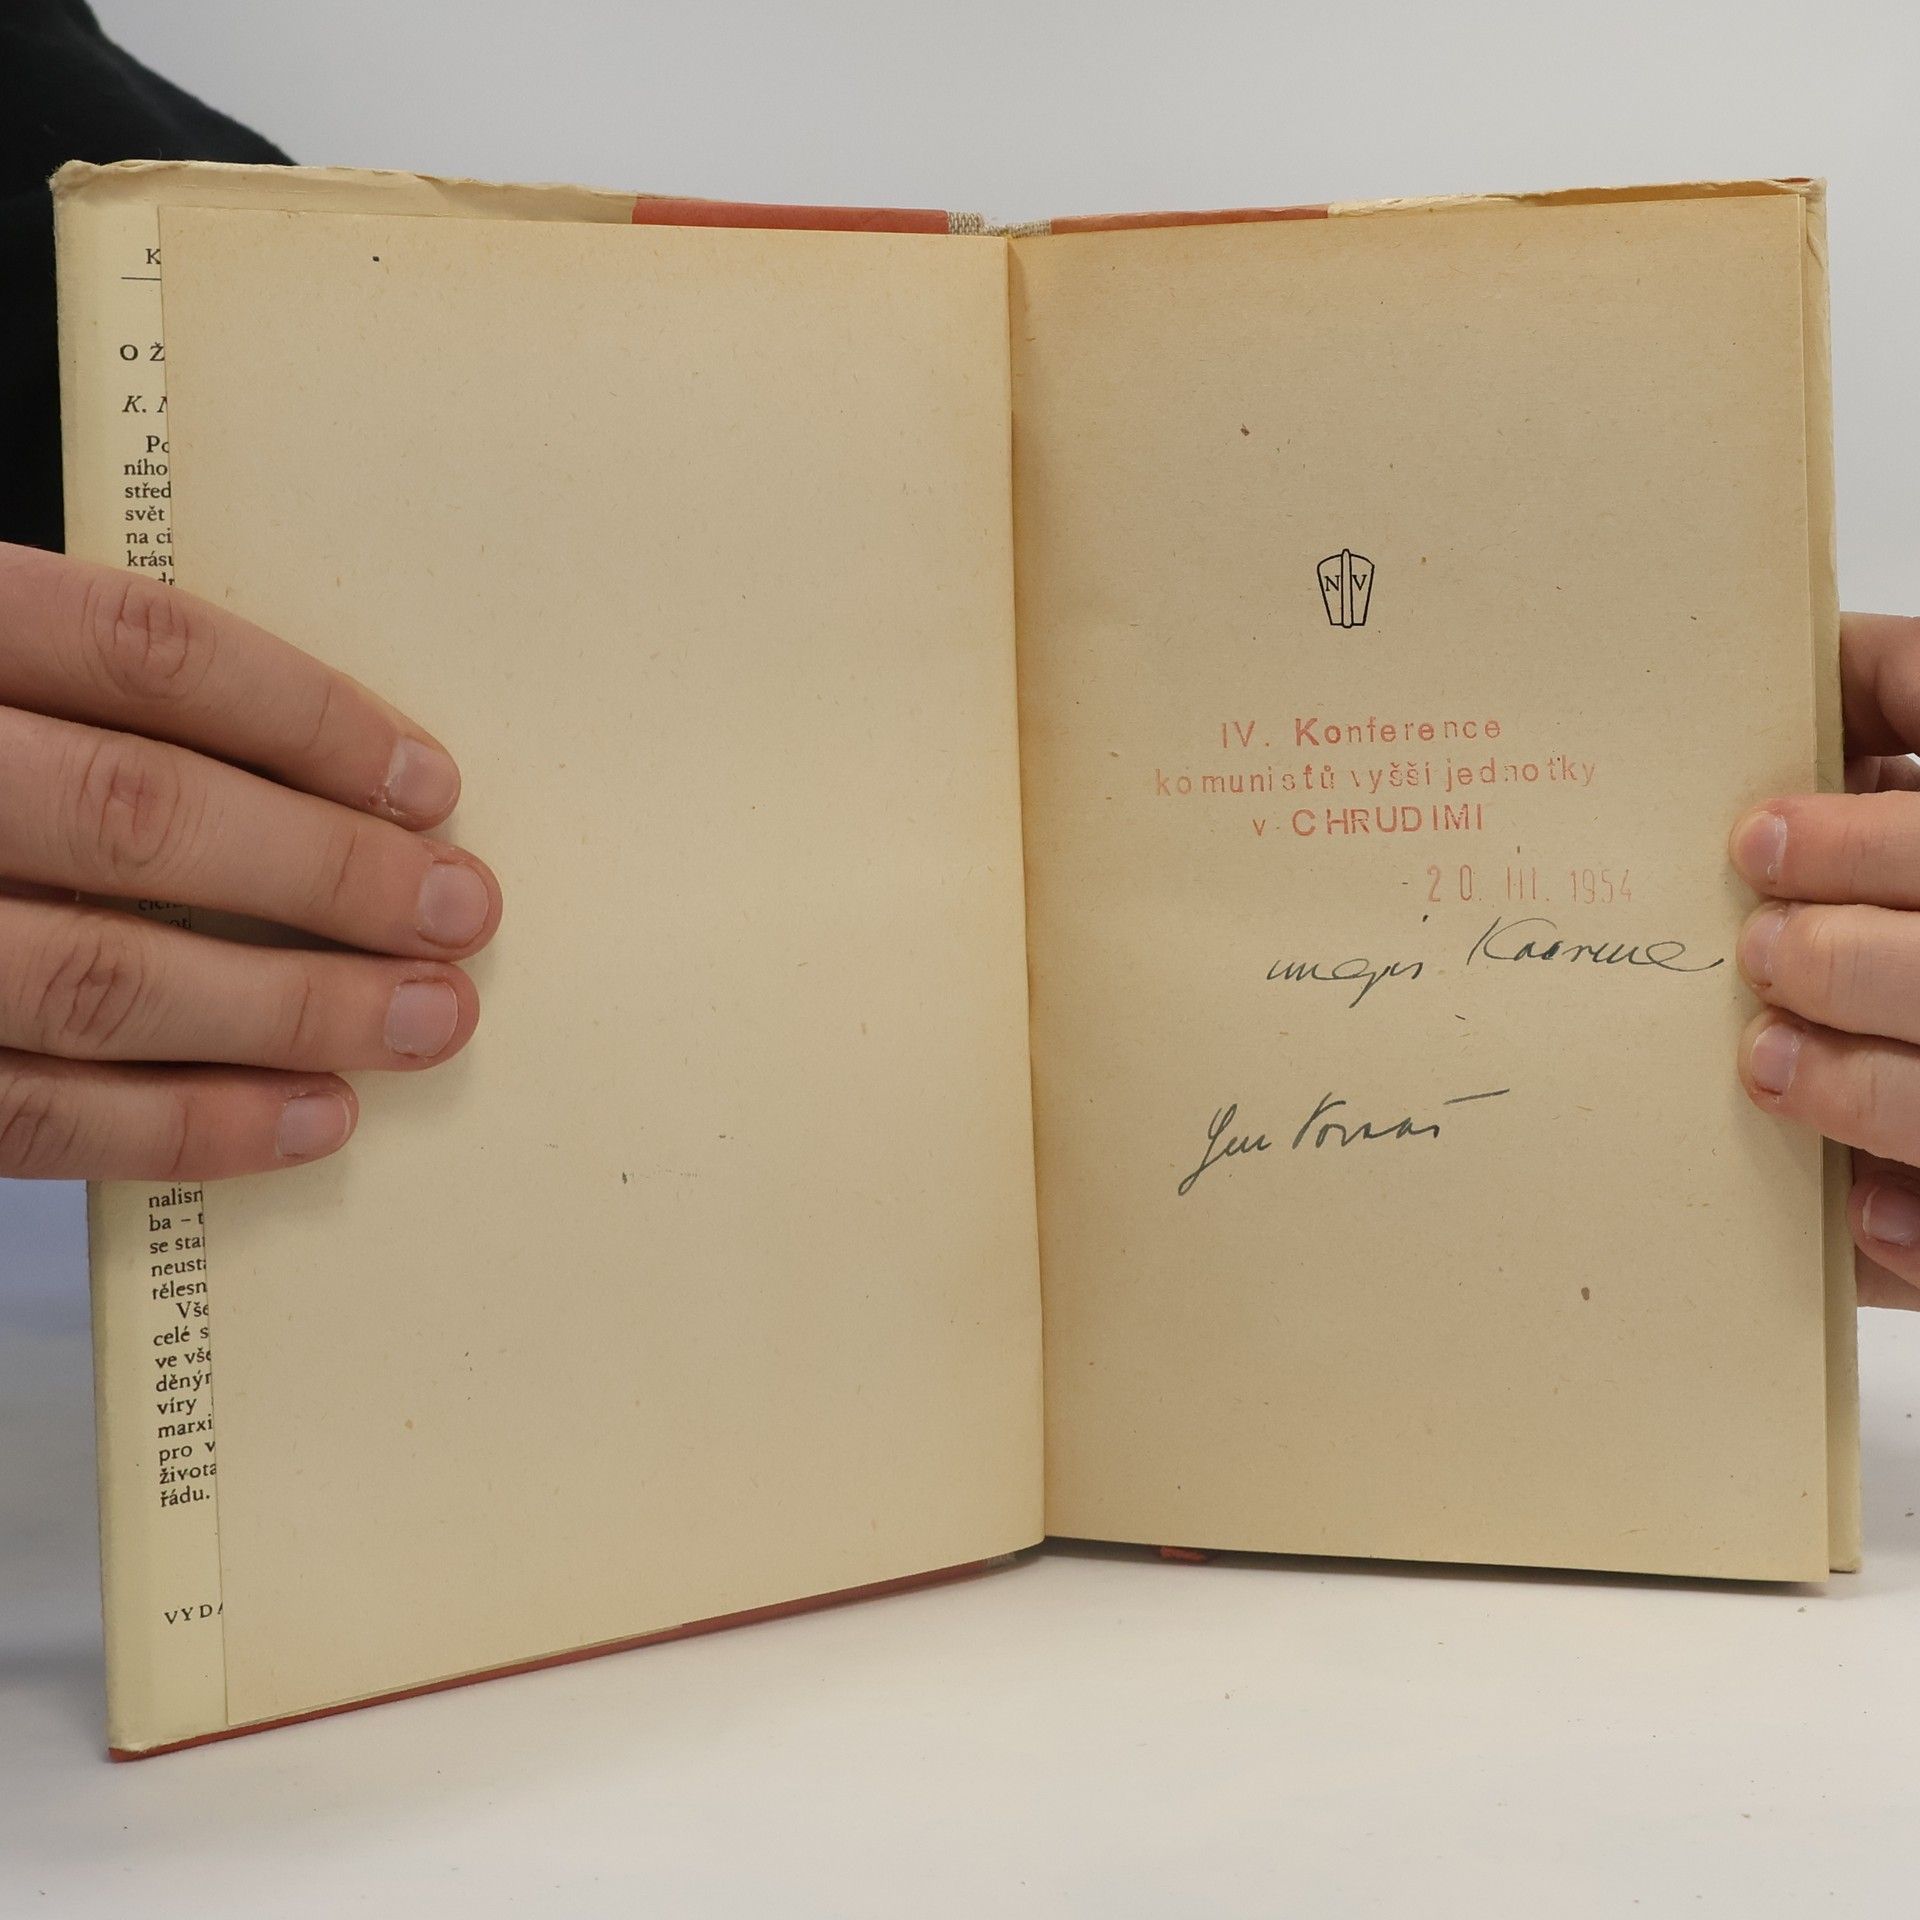 K
O Ž
K.
Po
ního
střed
svět
na ci
krásu
nalisn
ba – t
se star
neusta
tělesn
Vše
celé s
ve vše
děným
víry
marxi
pro v
života
řádu.
VYDA
N V
IV. Konference
komunistů vyšší jednotky
v CHRUDIMI
20. III. 1954